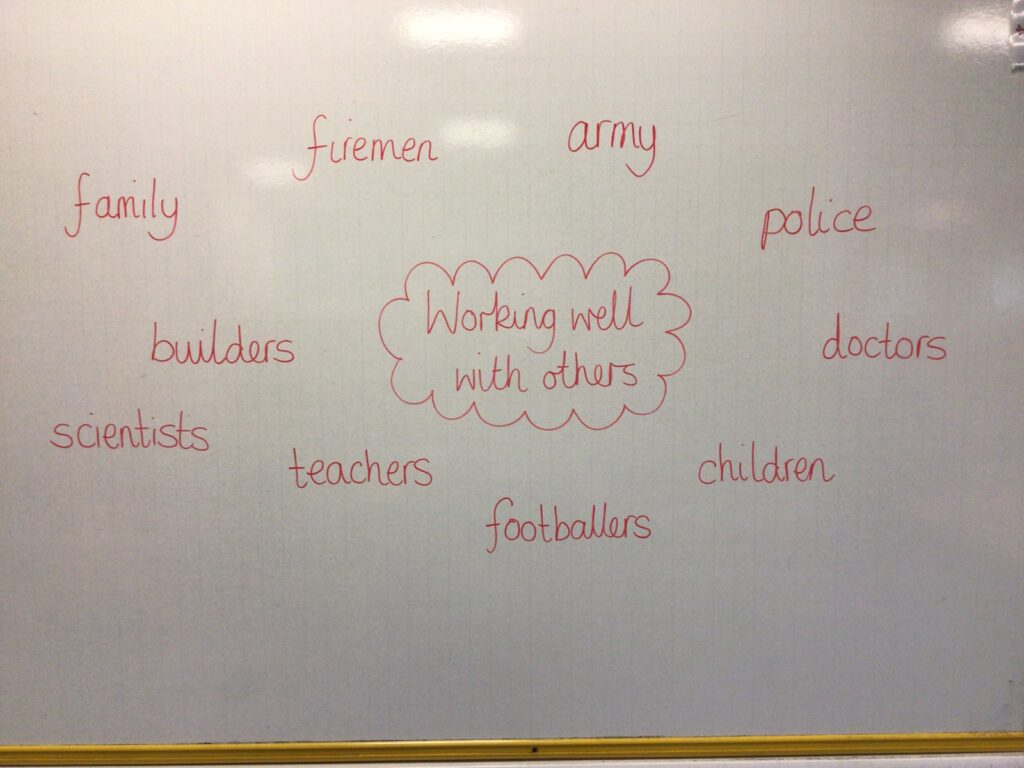 firemen
army
family
police
Working well
with others
builders
doctors
scientists
teachers
children
footballers